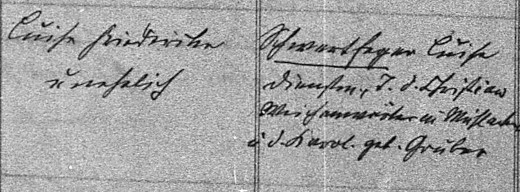 Luise Friederike
unehelich
Schwertfeger Luise
Dienstm., T. d. Christian
Weichenwärter in Mühlacker
u. d. Karol. geb. Gruber